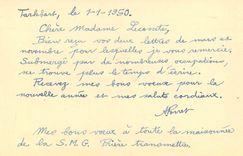 Farkhâst, le 1-1-1950.
Chère Madame Lecomte,
Bien reçu vos deux lettres de mars et
novembre pour lesquelles je vous remercie.
Submergé par de nombreuses occupations,
ne trouve plus le temps d'écrire.
Recevez mes bons vœux pour la
nouvelle année et mes saluts cordiaux.
Mes bons vœux à toute la maisonnée
de la S.M.G. Prière transmettre.